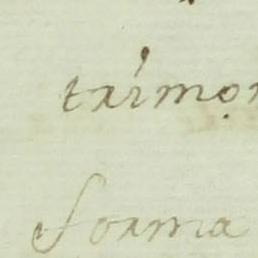 trimon
forma